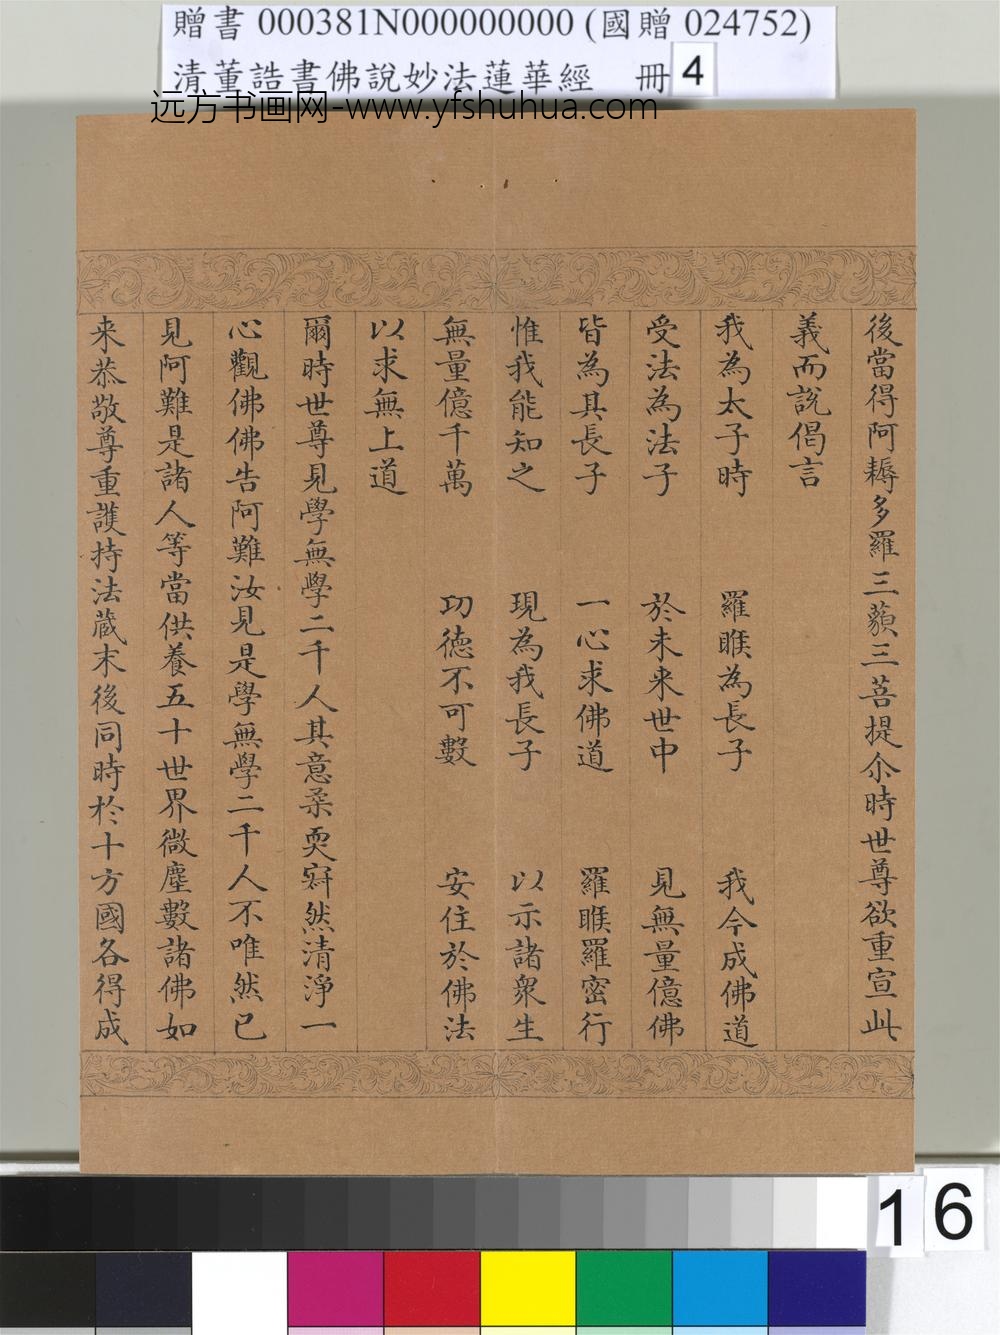 贈書 000381N000000000 (國贈 024752)
清董誥書佛說妙法蓮華經 冊 4
远方书画网-www.yfshuhua.com
後當得阿耨多羅三藐三菩提尒時世尊欲重宣此
義而說偈言
我為太子時 羅睺為長子 我今成佛道
受法為法子 於未来世中 見無量億佛
皆為其長子 一心求佛道 羅睺羅密行
惟我能知之 現為我長子 以示諸衆生
無量億千萬 功德不可數 安住於佛法
以求無上道
爾時世尊見學無學二千人其意柔耎寂然清淨一
心觀佛佛告阿難汝見是學無學二千人不唯然已
見阿難是諸人等當供養五十世界微塵數諸佛如
来恭敬尊重護持法藏末後同時於十方國各得成
16